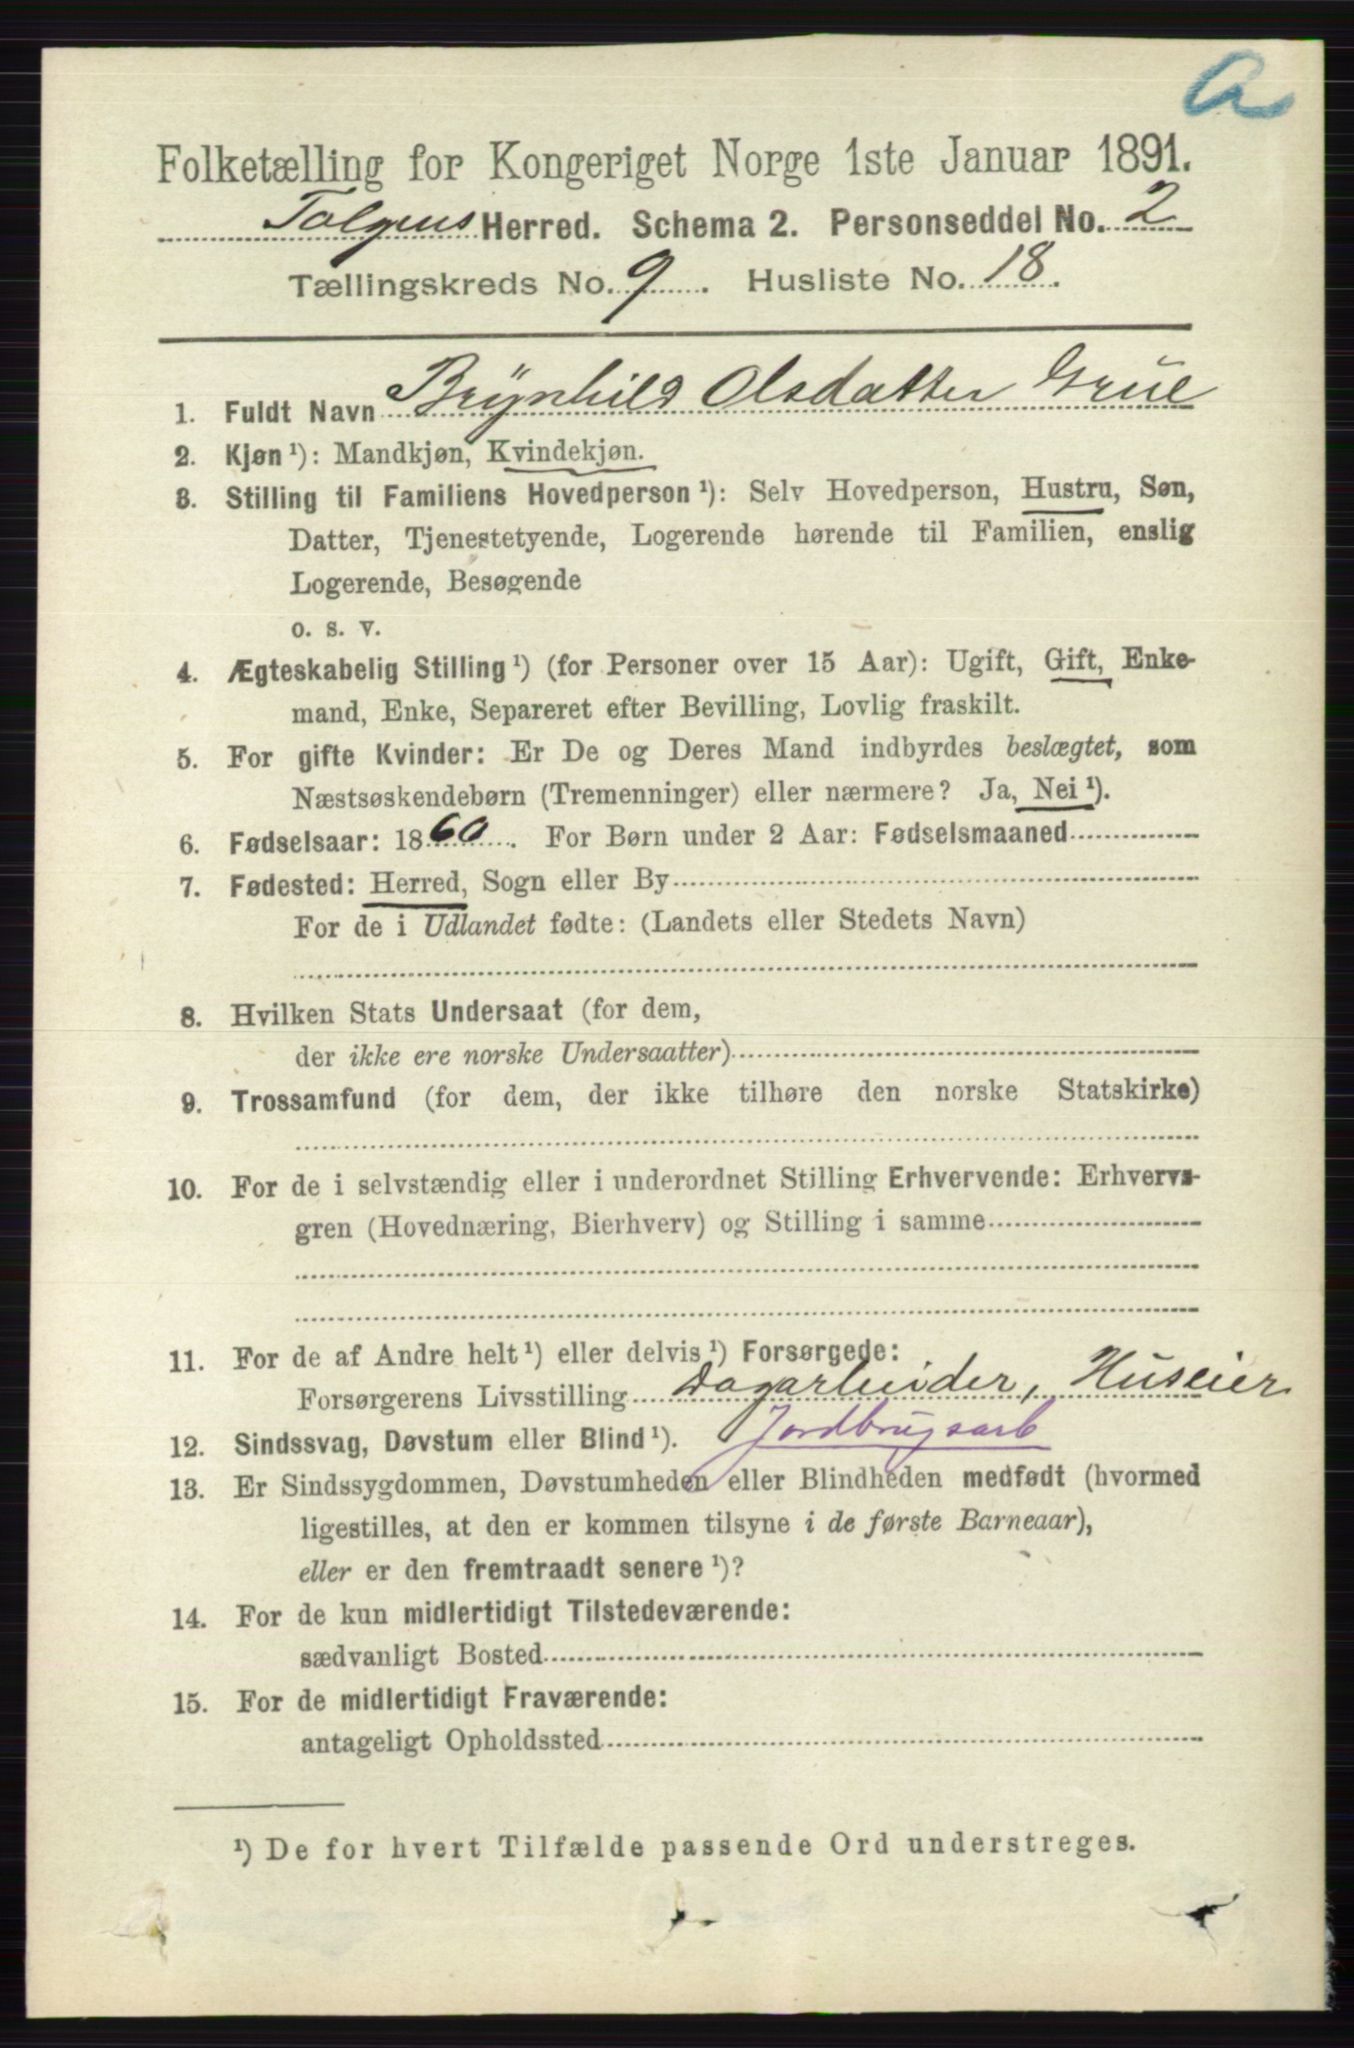 a
Folketælling for Kongeriget Norge 1ste Januar 1891.
Tolgens Herred. Schema 2. Personseddel No. 2
Tællingskreds No. 9. Husliste No. 18.
1. Fuldt Navn Brynhild Olsdatter Grue
2. Kjøn ¹): Mandkjøn, Kvindekjøn.
3. Stilling til Familiens Hovedperson ¹): Selv Hovedperson, Hustru, Søn,
Datter, Tjenestetyende, Logerende hørende til Familien, enslig
Logerende, Besøgende
o. s. v.
4. Ægteskabelig Stilling ¹) (for Personer over 15 Aar): Ugift, Gift, Enke-
mand, Enke, Separeret efter Bevilling, Lovlig fraskilt.
5. For gifte Kvinder: Er De og Deres Mand indbyrdes beslægtet, som
Næstsøskendebørn (Tremenninger) eller nærmere? Ja, Nei ¹).
6. Fødselsaar: 1860. For Børn under 2 Aar: Fødselsmaaned
7. Fødested: Herred, Sogn eller By
For de i Udlandet fødte: (Landets eller Stedets Navn)
8. Hvilken Stats Undersaat (for dem,
der ikke ere norske Undersaatter)
9. Trossamfund (for dem, der ikke tilhøre den norske Statskirke)
10. For de i selvstændig eller i underordnet Stilling Erhvervende: Erhvervs-
gren (Hovednæring, Bierhverv) og Stilling i samme
11. For de af Andre helt ¹) eller delvis ¹) Forsørgede:
Forsørgerens Livsstilling Dagarbeider, Huseier
12. Sindssvag, Døvstum eller Blind ¹). Jordbrugsarb
13. Er Sindssygdommen, Døvstumheden eller Blindheden medfødt (hvormed
ligestilles, at den er kommen tilsyne i de første Barneaar),
eller er den fremtraadt senere ¹)?
14. For de kun midlertidigt Tilstedeværende:
sædvanligt Bosted
15. For de midlertidigt Fraværende:
antageligt Opholdssted
¹) De for hvert Tilfælde passende Ord understreges.